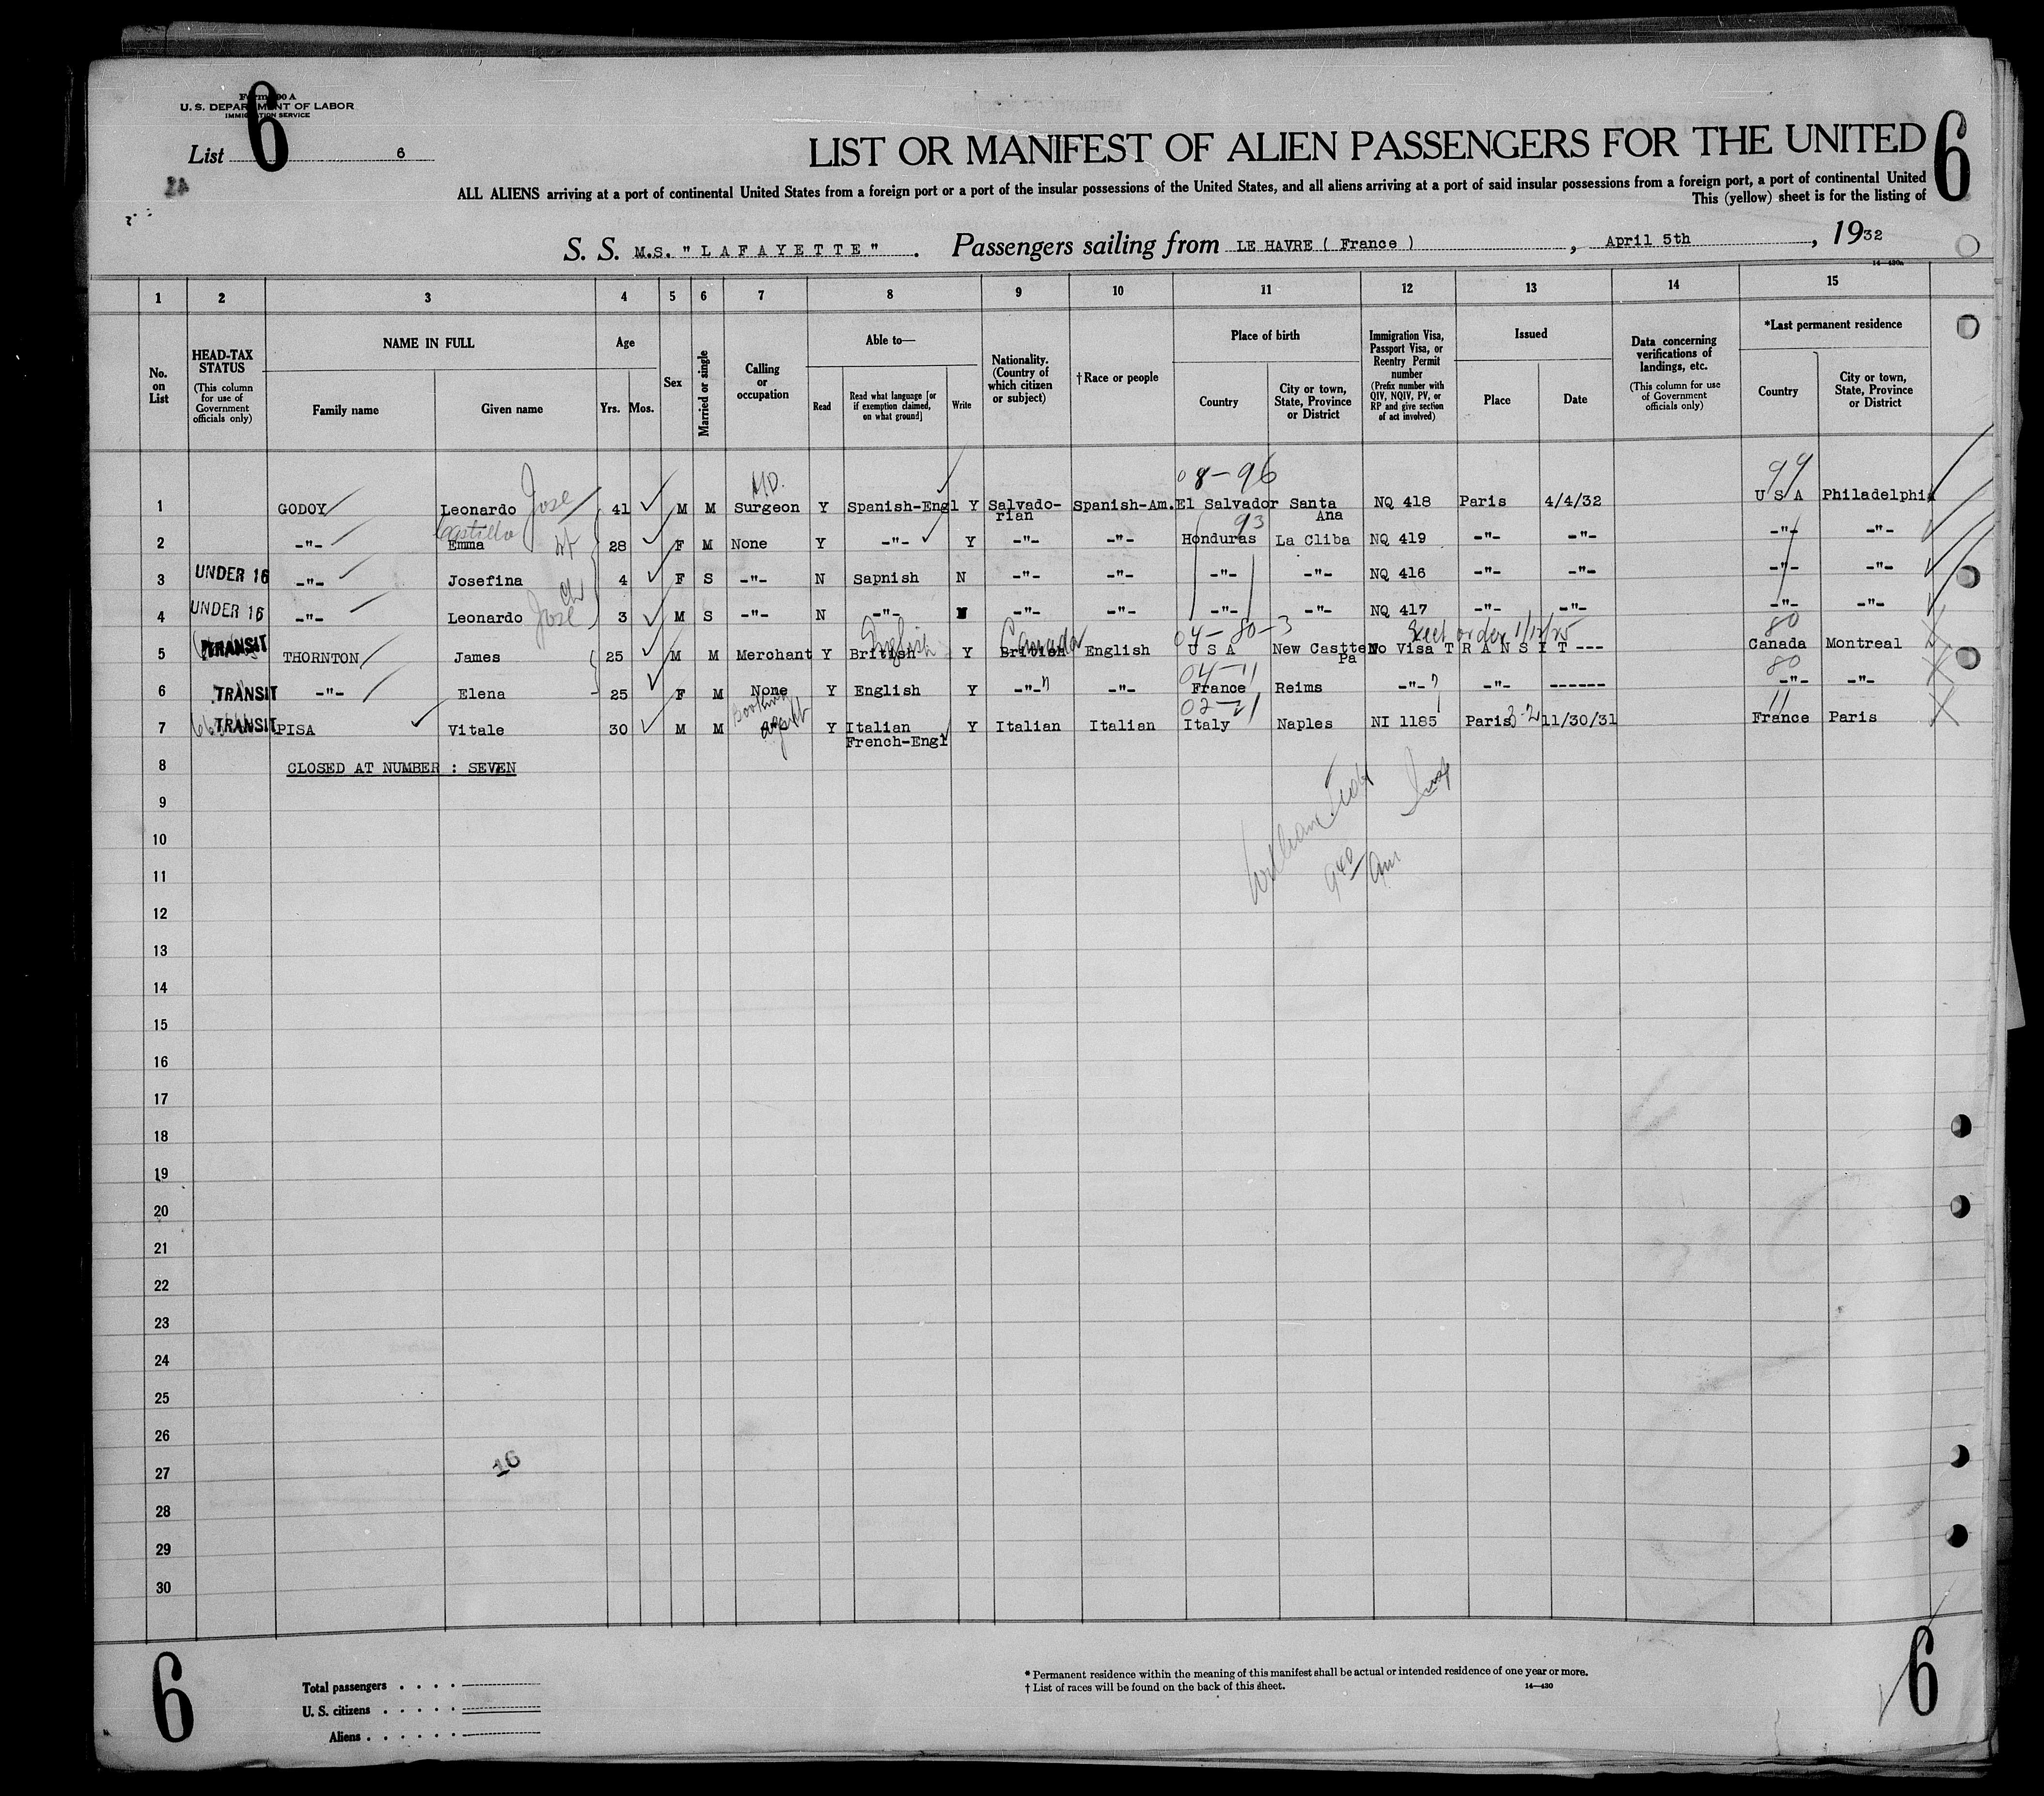 Form 500 A
U. S. DEPARTMENT OF LABOR
IMMIGRATION SERVICE
6
List 6
6
LIST OR MANIFEST OF ALIEN PASSENGERS FOR THE UNITED
ALL ALIENS arriving at a port of continental United States from a foreign port or a port of the insular possessions of the United States, and all aliens arriving at a port of said insular possessions from a foreign port, a port of continental United
This (yellow) sheet is for the listing of
S. S. M.S. "LAFAYETTE". Passengers sailing from LE HAVRE ( France ), April 5th, 1932
14—430a
1 2 3 4 5 6 7 8 9 10 11 12 13 14 15
No. on List
HEAD-TAX STATUS
(This column for use of Government officials only)
NAME IN FULL
Family name
Given name
Age
Yrs. Mos.
Sex
Married or single
Calling or occupation
Able to—
Read
Read what language [or if exemption claimed, on what ground]
Write
Nationality. (Country of which citizen or subject)
†Race or people
Place of birth
Country
City or town, State, Province or District
Immigration Visa, Passport Visa, or Reentry Permit number
(Prefix number with QIV, NQIV, PV, or RP and give section of act involved)
Issued
Place
Date
Data concerning verifications of landings, etc.
(This column for use of Government officials only)
*Last permanent residence
Country
City or town, State, Province or District
MD. 08-96 99
1 GODOY Leonardo Jose 41 M M Surgeon Y Spanish-Engl Y Salvado-rian Spanish-Am. El Salvador Santa Ana NQ 418 Paris 4/4/32 U S A Philadelphia
Castillo 93
2 -"- Emma 28 F M None Y -"- Y -"- -"- Honduras La Cliba NQ 419 -"- -"- -"- -"-
3 UNDER 16 -"- Josefina 4 F S -"- N Sapnish N -"- -"- -"- -"- NQ 416 -"- -"- -"- -"-
4 UNDER 16 -"- Leonardo Jose 3 M S N -"- N -"- -"- -"- -"- NQ 417 -"- -"- -"- -"-
English Canada 04-80-3 Exect order 1/12/25 80
5 TRANSIT THORNTON James 25 M M Merchant Y British Y British English U S A New Castte Pa No Visa T R A N S I T --- Canada Montreal
04-11 80
6 TRANSIT -"- Elena 25 F M None Y English Y -"- -"- France Reims -"- -"- ------ -"- -"-
Booking agent 02-21 11
7 TRANSIT PISA Vitale 30 M M Y Italian French-Engl Y Italian Italian Italy Naples NI 1185 Paris 11/30/31 France Paris
8 CLOSED AT NUMBER : SEVEN
9
10
11
12
13
14
15
16
17
18
19
20
21
22
23
24
25
26
27
28
29
30
William
Insp
9 40 am
16
6
Total passengers
U. S. citizens
Aliens
* Permanent residence within the meaning of this manifest shall be actual or intended residence of one year or more.
† List of races will be found on the back of this sheet.
14—430
6